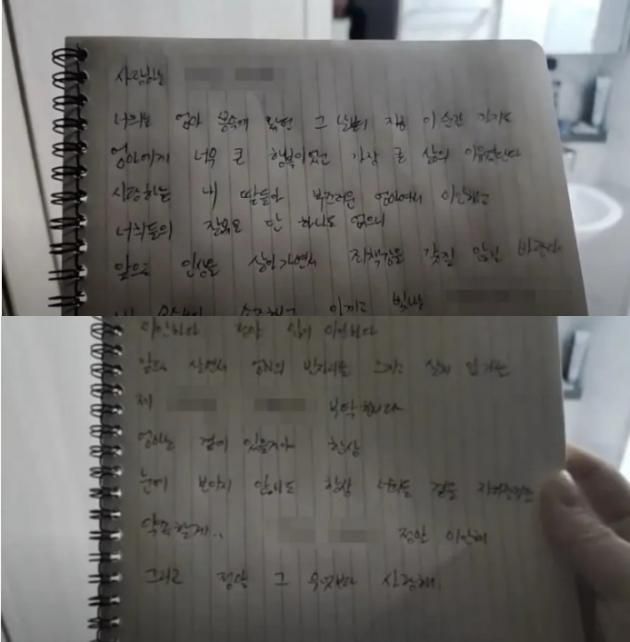 사랑하는
너희는 엄마 뱃속에 왔던 그 날부터 지금 이 순간 까지도
엄마에게 너무 큰 행복이었고 가장 큰 삶의 이유였단다
사랑하는 내 딸들아 부끄러운 엄마여서 미안하고
너희들의 잘못은 단 하나도 없으니
앞으로 인생을 살아가면서 죄책감을 갖질 않길 바란다
소중하고 아끼고 빛나는
미안하다 정말 많이 미안하다
앞으로 살면서 엄마의 빈자리를 느끼고 살게
부탁한다
엄마는 곁에 있을거야 항상
눈에 보이지 않아도 항상 너희들 곁을
약속할게..
정말 미안해
그리고 정말 그 무엇보다 사랑해.